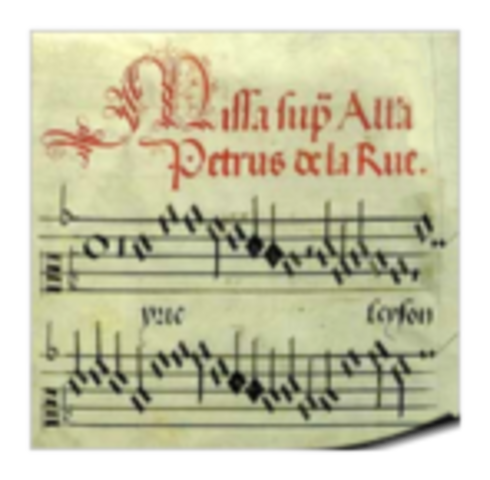 Missa sup̄ All̄a
Petrus de la Rue.
yrie leyson